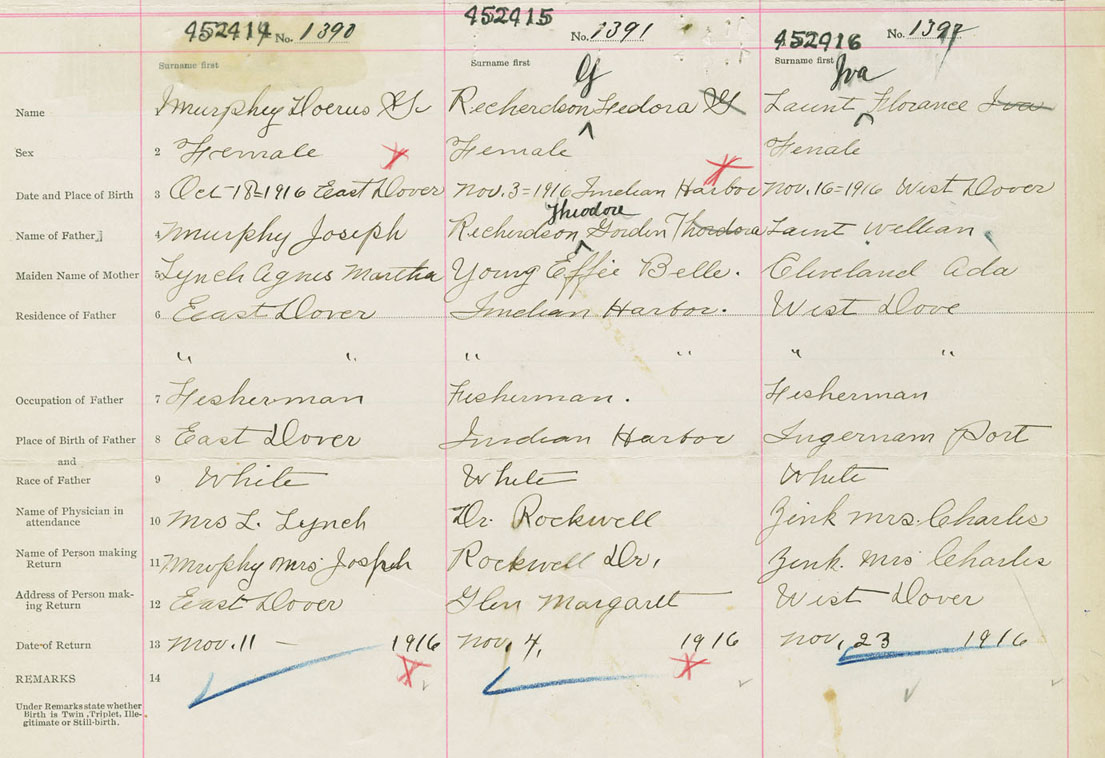 452414 No. 1390
452415 No. 1391
452416 No. 1392
Surname first Surname first Surname first
G Iva
Name Murphey Docrus Richerdson Feedora G Launt Florance Iva
Sex 2 Female Female Female
Date and Place of Birth 3 Oct-18=1916 East Dover Nov. 3=1916 Indian Harbor Nov. 16=1916 West Dover
Theodore
Name of Father 4 Murphy Joseph Richerdson Gorden Thordora Launt Wellian
Maiden Name of Mother 5 Lynch Agnis Martha Young Effie Belle. Cleveland Ada
Residence of Father 6 East Dover Indian Harbor. West Dove
" " " " " "
Occupation of Father 7 Fisherman Fisherman. Fisherman
Place of Birth of Father 8 East Dover Indian Harbor Ingernam Port
and
Race of Father 9 White White White
Name of Physician in
attendance 10 Mrs L. Lynch Dr. Rockwell Zink Mrs. Charles
Name of Person making
Return 11 Murphy Mrs Joseph Rockwell Dr. Zink. Mrs Charles
Address of Person mak-
ing Return 12 East Dover Glen Margaret West Dover
Date of Return 13 Nov. 11 — 1916 Nov. 4, 1916 Nov, 23 1916
REMARKS 14
Under Remarks state whether
Birth is Twin, Triplet, Ille-
gitimate or Still-birth.